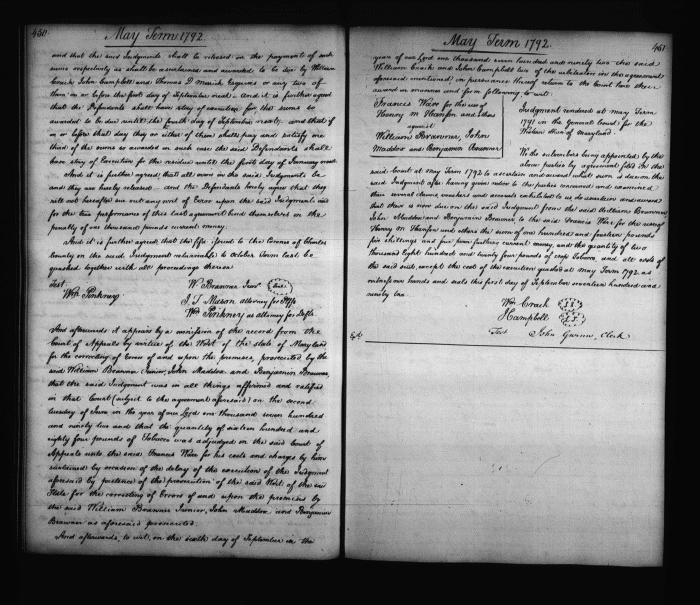 450.
May Term 1792.
and that the said Judgments shall be released on the payment of such
sums respectively as shall be ascertained and awarded to be due by William
Craik, John Campbell and Thomas D Esquires or any two of
them on or before the first day of September next. and it is further agreed
that the Defendants shall have stay of execution for the sums so
awarded to be due until the fourth day of September next, and that if
on or before that day they or either of them shall pay and satisfy one
third of the sums so awarded in such case the said Defendants shall
have stay of Execution for the residue until the first day of January next.
And it is further agreed that all errors in the said Judgments be
and they are hereby released and the Defendants hereby agree that they
will not hereafter sue out any writ of Error upon the said Judgments and
for the true performance of this last agreement bind themselves in the
penalty of one thousand pounds current money.
And it is further agreed that the fifa issued to the Coroner of Charles
County on the said Judgment returnable to October Term last be
quashed together with all proceedings thereon
Test.
W. Brawner Junr Seal
Wm Pinkney
J. T. Mason attorney for Plffs
Wm Pinkney as attorney for Defts
And afterwards it appears by a transmission of the record from the
Court of Appeals by virtue of the Writ of the state of Maryland
for the correcting of Errors of and upon the premises, prosecuted by the
said William Brawner Junior, John Maddox and Benjamin Brawner,
that the said Judgment was in all things affirmed and ratified
in that Court (subject to the agreement aforesaid) on the second
tuesday of June in the year of our Lord one thousand seven hundred
and ninety two and that the quantity of sixteen hundred and
eighty four pounds of Tobacco was adjudged in the said Court of
Appeals unto the said Francis Ware for his costs and charges by him
sustained by occasion of the delay of the execution of the Judgment
aforesaid by pretence of the prosecution of the said Writ of the said
State for the correcting of Errors of and upon the premises by
the said William Brawner Junior, John Maddox and Benjamin
Brawner as aforesaid prosecuted.
And afterwards, to wit, on the sixth day of September in the
May Term 1792.
451
year of our Lord one thousand seven hundred and ninety two the said
William Craik and John Campbell two of the arbitrators in the agreement
aforesaid mentioned, in pursuance thereof return to the Court here their
award in manner and form following to wit:
Francis Ware for the use of
Henry M Hanson and others
against
William Brawner, John
Maddox and Benjamin Brawner
Judgment rendered at may Term
1791 in the General Court for the
Western Shore of Maryland.
We the subscribers being appointed by the
above parties by agreement filed in the
said Court at May Term 1792 to ascertain and award what sum is due on the
said Judgment after having given notice to the parties concerned and examined
their several claims, vouchers and accounts exhibited to us do ascertain and award
that there is now due on the said Judgment from the said William Brawner,
John Maddox and Benjamin Brawner to the said Francis Ware for the use of
Henry M Hanson and others the sum of one hundred and fourteen pounds
five shillings and four pence farthing current money, and the quantity of two
thousand Eight hundred and twenty four pounds of crop Tobacco, and all costs of
the said suit, except the cost of the execution quashed at May Term 1792 as
witness our hands and seals this first day of September seventeen hundred and
ninety two
Wm Craik L.S.
J Campbell L.S.
Test John Gwinn, Clerk
Exd